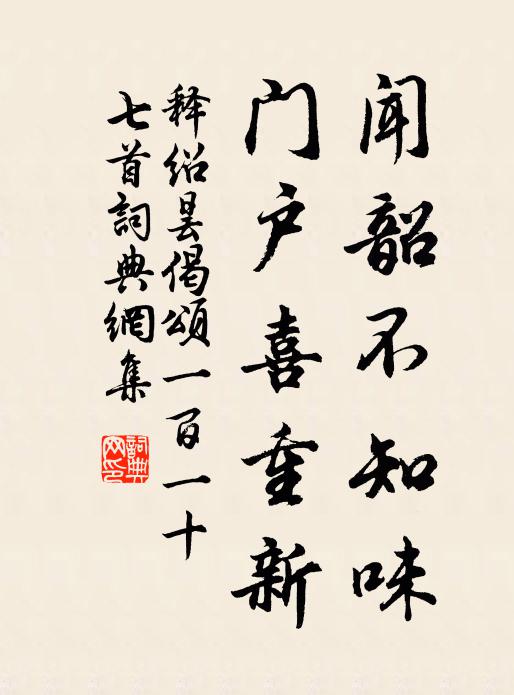 闻韶不知味
门户喜重新
释绍昙偈颂一百一十
七首詞典網集
詞典网印